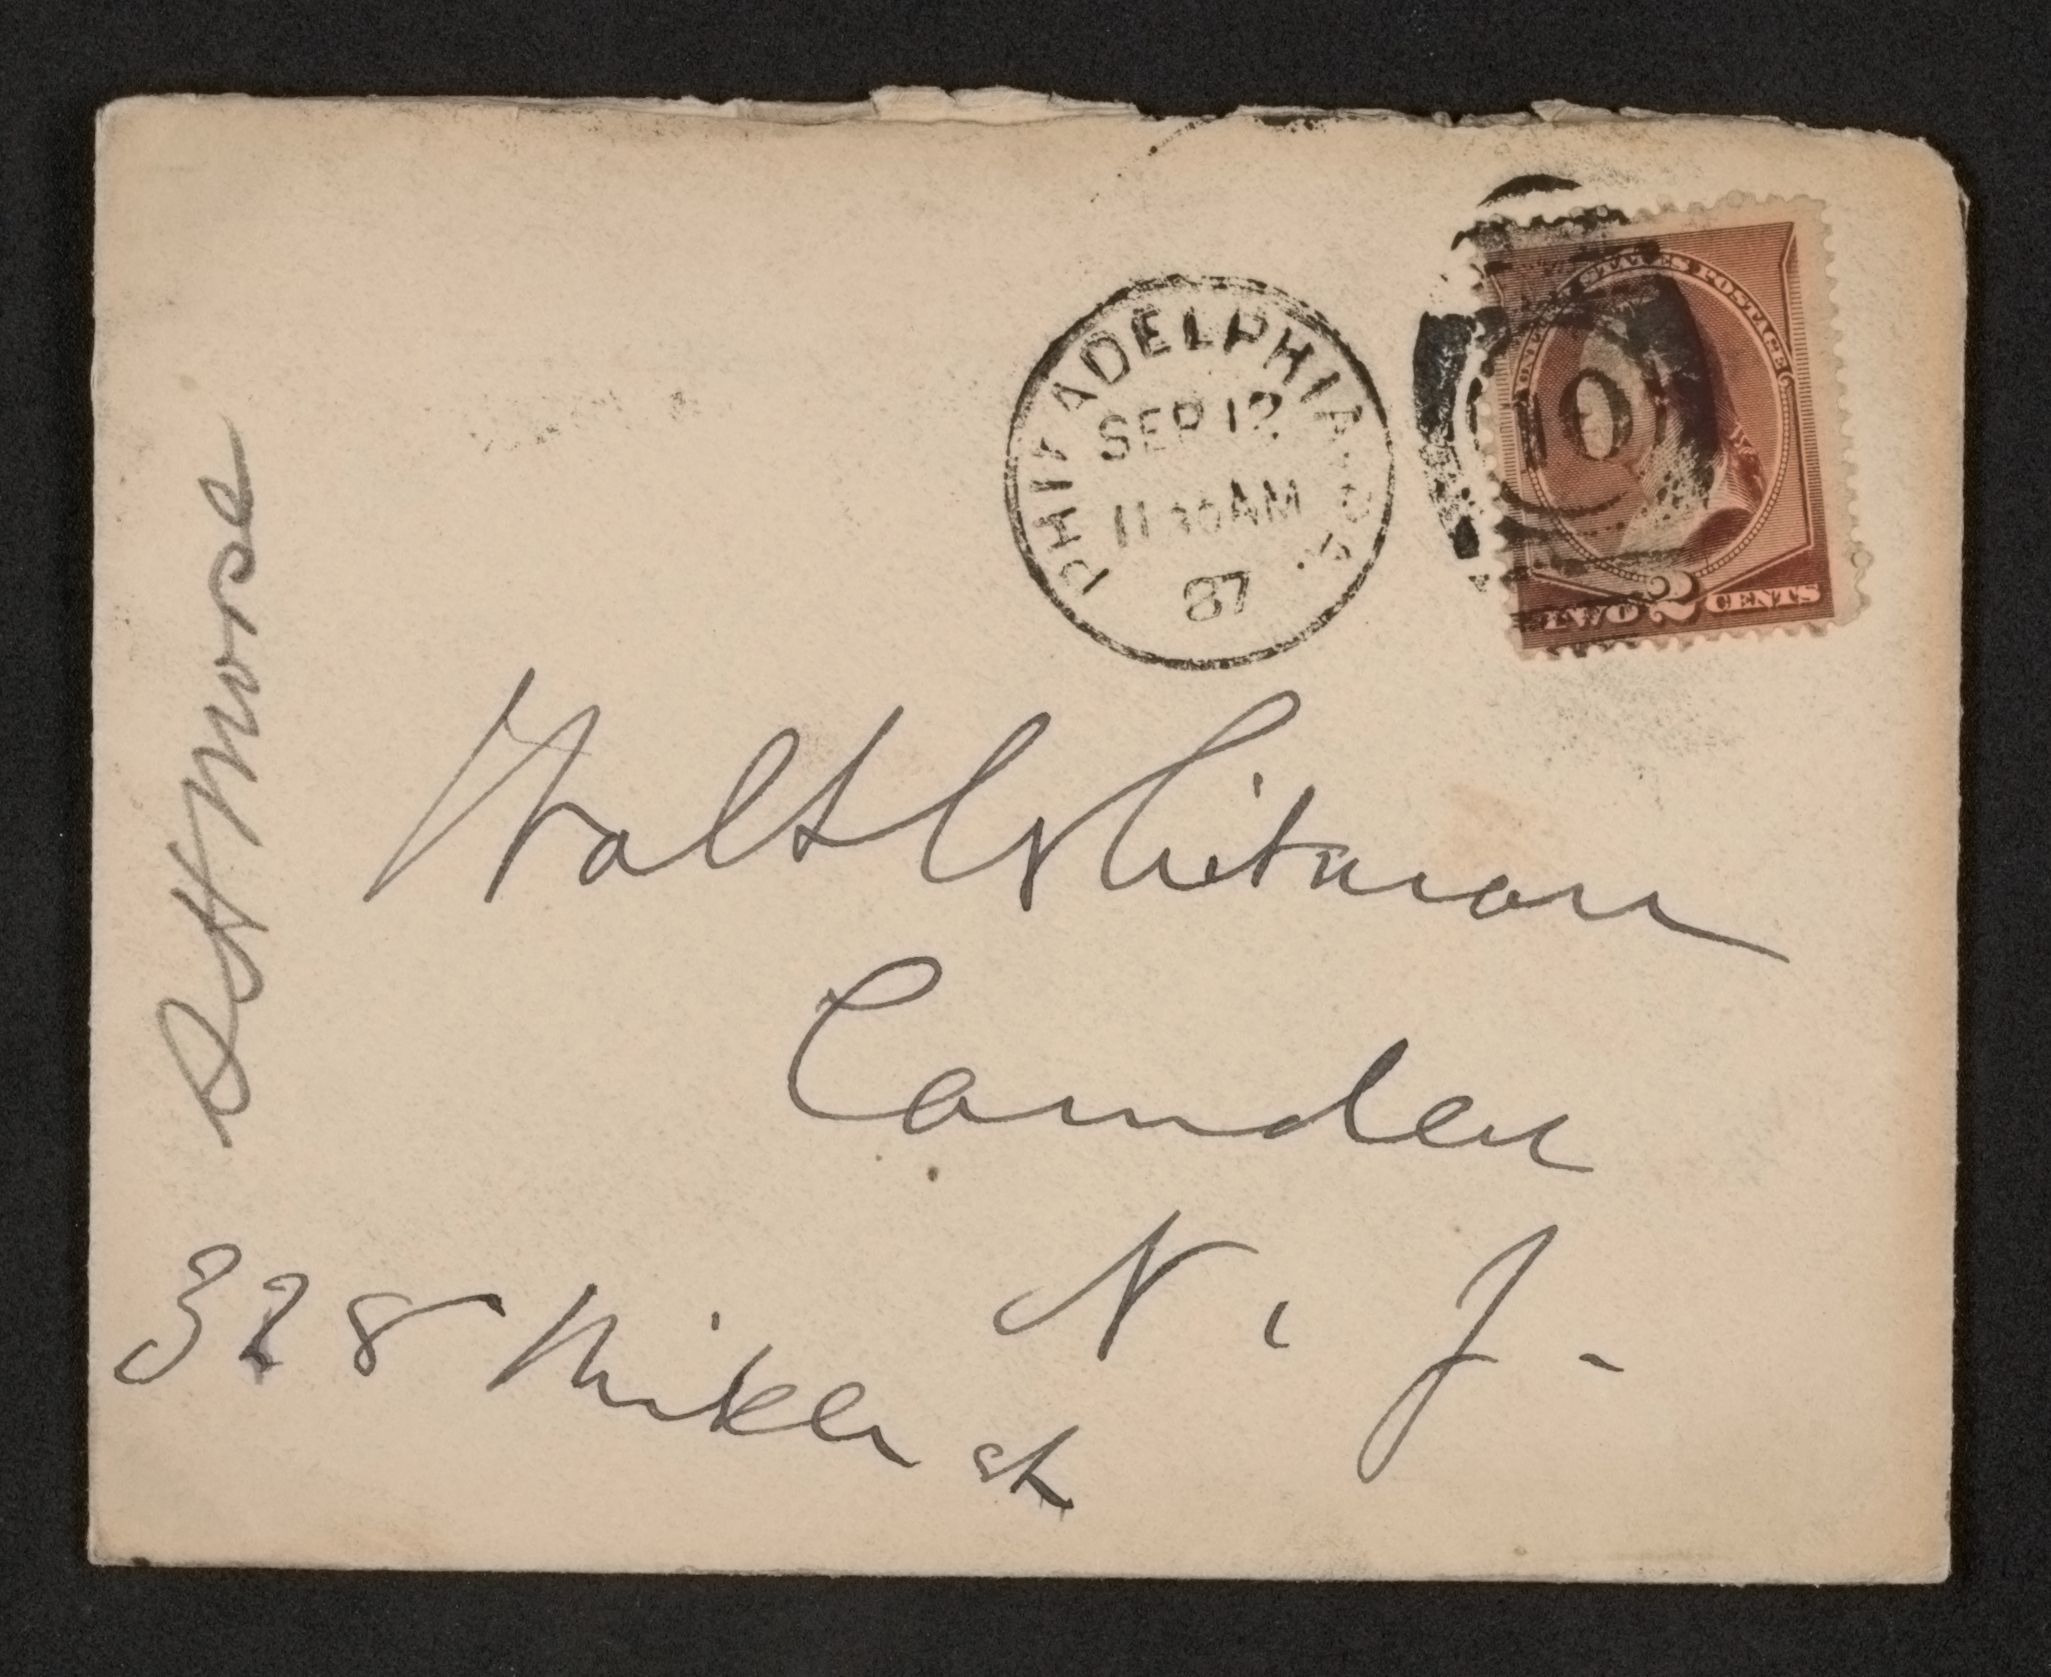 PHILADELPHIA, PA.
SEP 12
11 30 AM
87
10
UNITED STATES POSTAGE
TWO 2 CENTS
S H Morse
Walt Whitman
Camden
N. J.
328 Mickle st